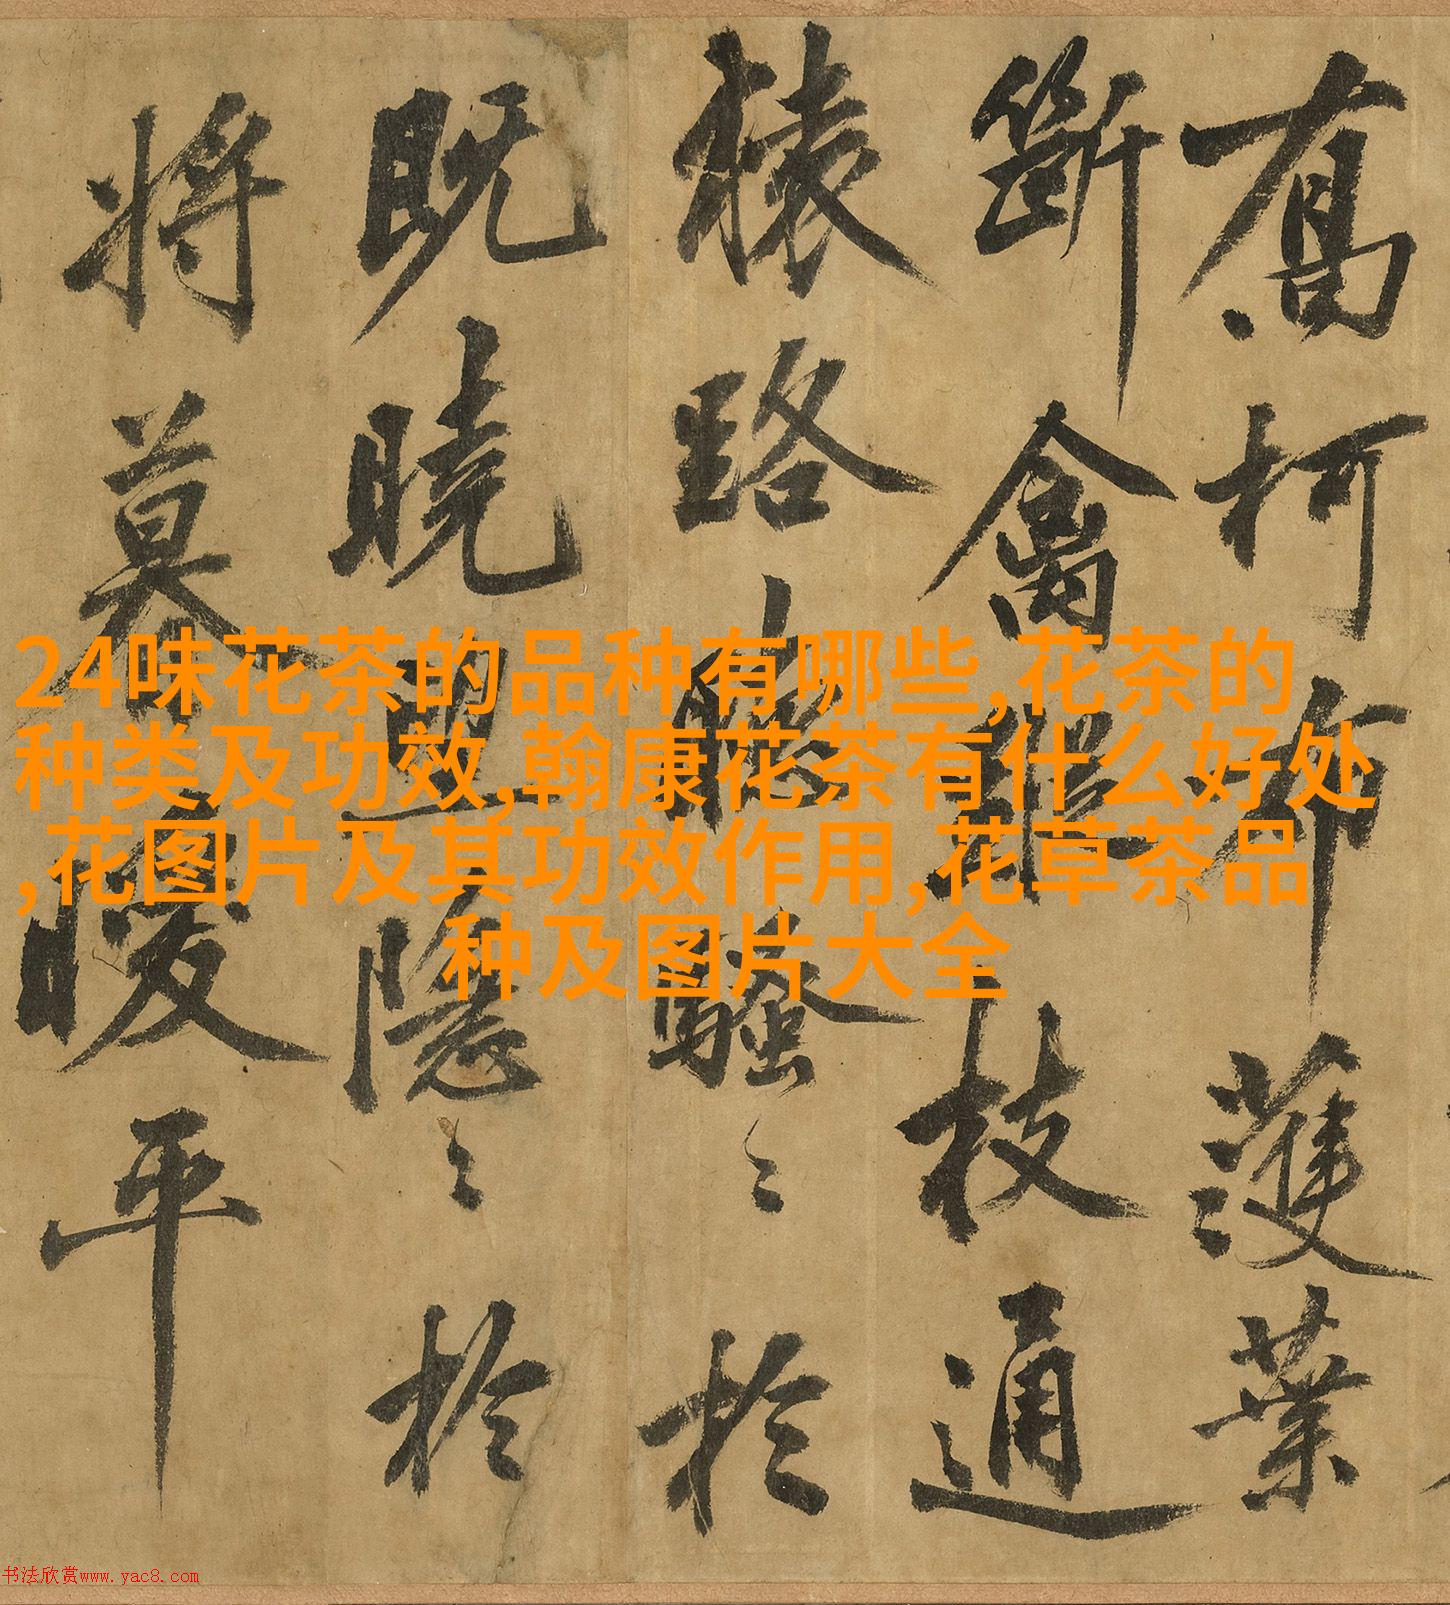 柯布濩葉
斷禽枝通
猿路聽騷〻於
既曉隱〻於
將暮曖平
24味花茶的品种有哪些,花茶的
种类及功效,翰康花茶有什么好处
,花图片及其功效作用,花草茶品
种及图片大全
书法欣赏www.yac8.com